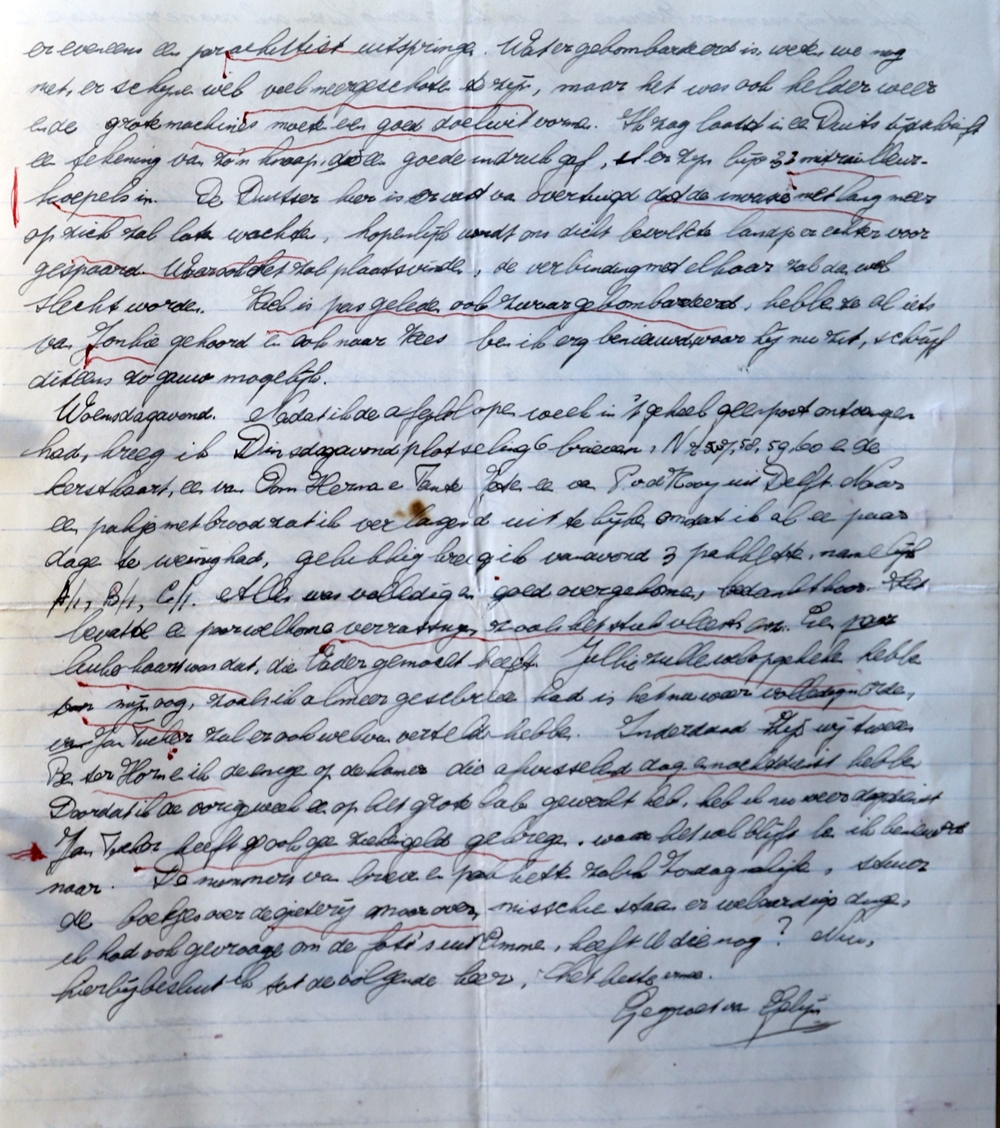 er eveneens een parachuttist uitspringen. Wat er gebombardeerd is weten we nog
niet, er schijnen wel veel neergeschoten te zijn, maar het was ook helder weer
en de grote machines moeten een goed doelwit vormen. Ik zag laatst in een Duits tijdschrift
een tekening van zo'n knaap, die een goede indruk gaf, er zijn bijv 32 mitrailleur-
koepels in. De Duitser hier is er vast van overtuigd dat de invasie niet lang meer
op zich zal laten wachten, hopenlijk wordt ons dicht bevolkte landje er echter voor
gespaard. Waar ook het zal plaatsvinden, de verbinding met elkaar zal dan wel
slecht worden. Kiel is pas geleden ook zwaar gebombardeerd, hebben ze al iets
van Jonkie gehoord en ook naar Kees ben ik erg benieuwd, waar hij nu zit, schrijf
dit eens zo gauw mogelijk.
Woensdagavond. Nadat ik de afgelopen week in 't geheel geen post ontvangen
had, kreeg ik Dinsdagavond plotseling 6 brieven, Nr 57, 58, 59, 60 en de
kerstkaart, een van Oom Herman en Tante en een van P. v.d. Kooy uit Delft. Naar
een pakje met brood zat ik verlangend uit te kijken omdat ik al een paar
dagen te weinig had, gelukkig kreeg ik vanavond 3 pakketten, namelijk
A/1, B/1, C/1. Alles was volledig en goed overgekomen, bedankt hoor. Het
bevatte een paar welkome verrassingen zoals het stuk vlees enz. Een paar
leuke kaarten was dat, die Vader gemaakt heeft. Jullie zullen wel opgekeken hebben
van mijn oog, zoals ik al meer geschreven had is het nu weer volledig in orde,
Jan Tucker zal er ook wel van verteld hebben. Inderdaad zijn wij tweeën
Ben ter Horst en ik de enige op de kamer die afwisselend dag en nachtdienst hebben
Doordat ik de vorige week op het grote lab gewerkt heb, heb ik nu weer dagdienst
Jan Tucker heeft ook geen ziekengeld gekregen, waar het wel blijft ben ik benieuwd
naar. De nummers van brieven en pakketten zal ik Zondag nakijken, stuur
de boekjes over de gieterij maar over, misschien staan er wel aardige dingen
ik had ook gevraagd om de foto's uit Emmen, heeft U die nog? Nu,
hierbij besluit ik tot de volgende keer, het beste
Gegroet van